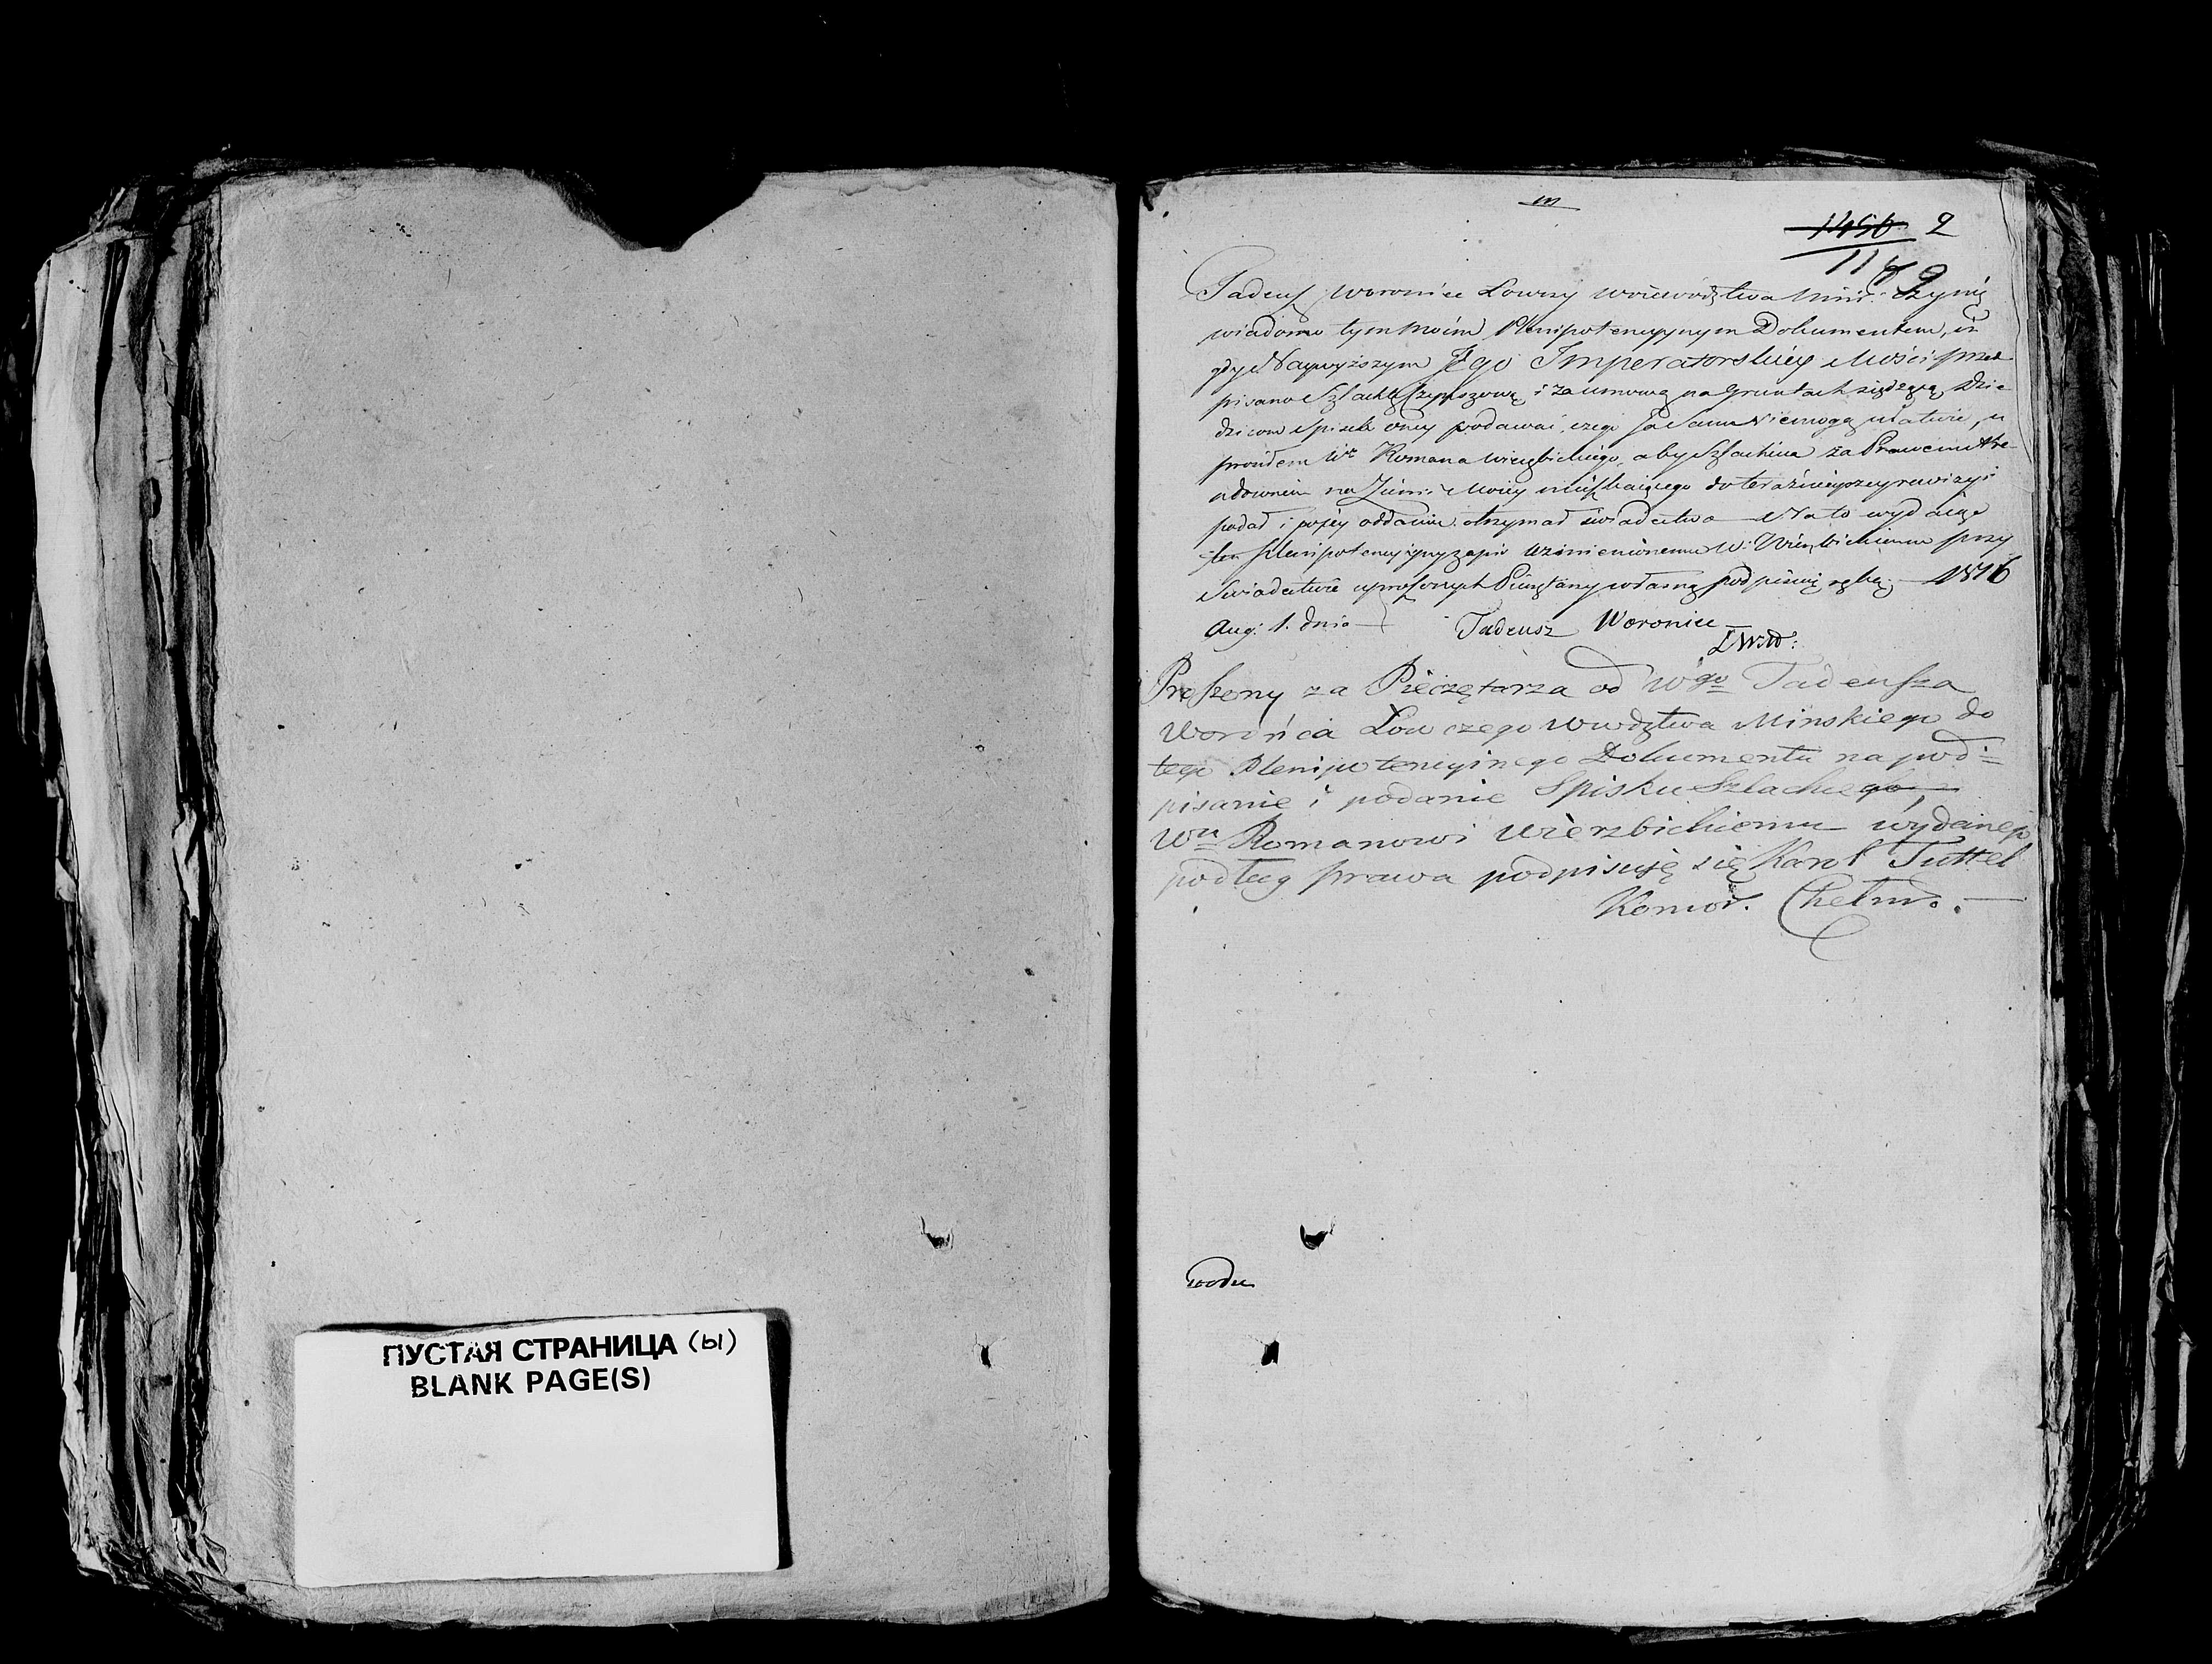 ПУСТАЯ СТРАНИЦА (ы)
BLANK PAGE(S)
m
1456 2
1179
Tadeusz Woronicz Łowczy Woiewodztwa Miń: Czynię
wiadomo tym moim Plenipotencyynym Dokumentem, iż
gdy Naywyższym Jego Imperatorskiey Mości przed
pisano Szlachtę Czynszową i za umową na Gruntach siędzącą dzie
dzicom Spisek oney podawać, czego Ja Sam Niemogę ułatwić, u
prosiłem Wo Romana Wierzbickiego, aby Szlachica za Prawem
na Ziemi Moiey mieszkaiącego do teraźnieyszey rewizyi
podał i po jey oddaniu otrzymał świadectwo Na to wydaiąc
ten Plenipotencyiny zapis wzmienionemu W: Wierzbickiemu przy
Swiadectwie uproszonych Pieczętarzy własną podpisuię ręką. — 1816
Aug: 1. dnia — Tadeusz Woronicz
ŁWM:
Proszony za Pieczętarza od Wgo Tadeusza
Worońca Łowczego Wwdztwa Minskiego do
tego Plenipotencyinego Dokumentu na pod=
pisanie i podanie Spisku Szlachego,
Wu Romanowi Wierzbickiemu wydanego
podług prawa podpisuję się Karol Tuttel
Komor. Chełm. —